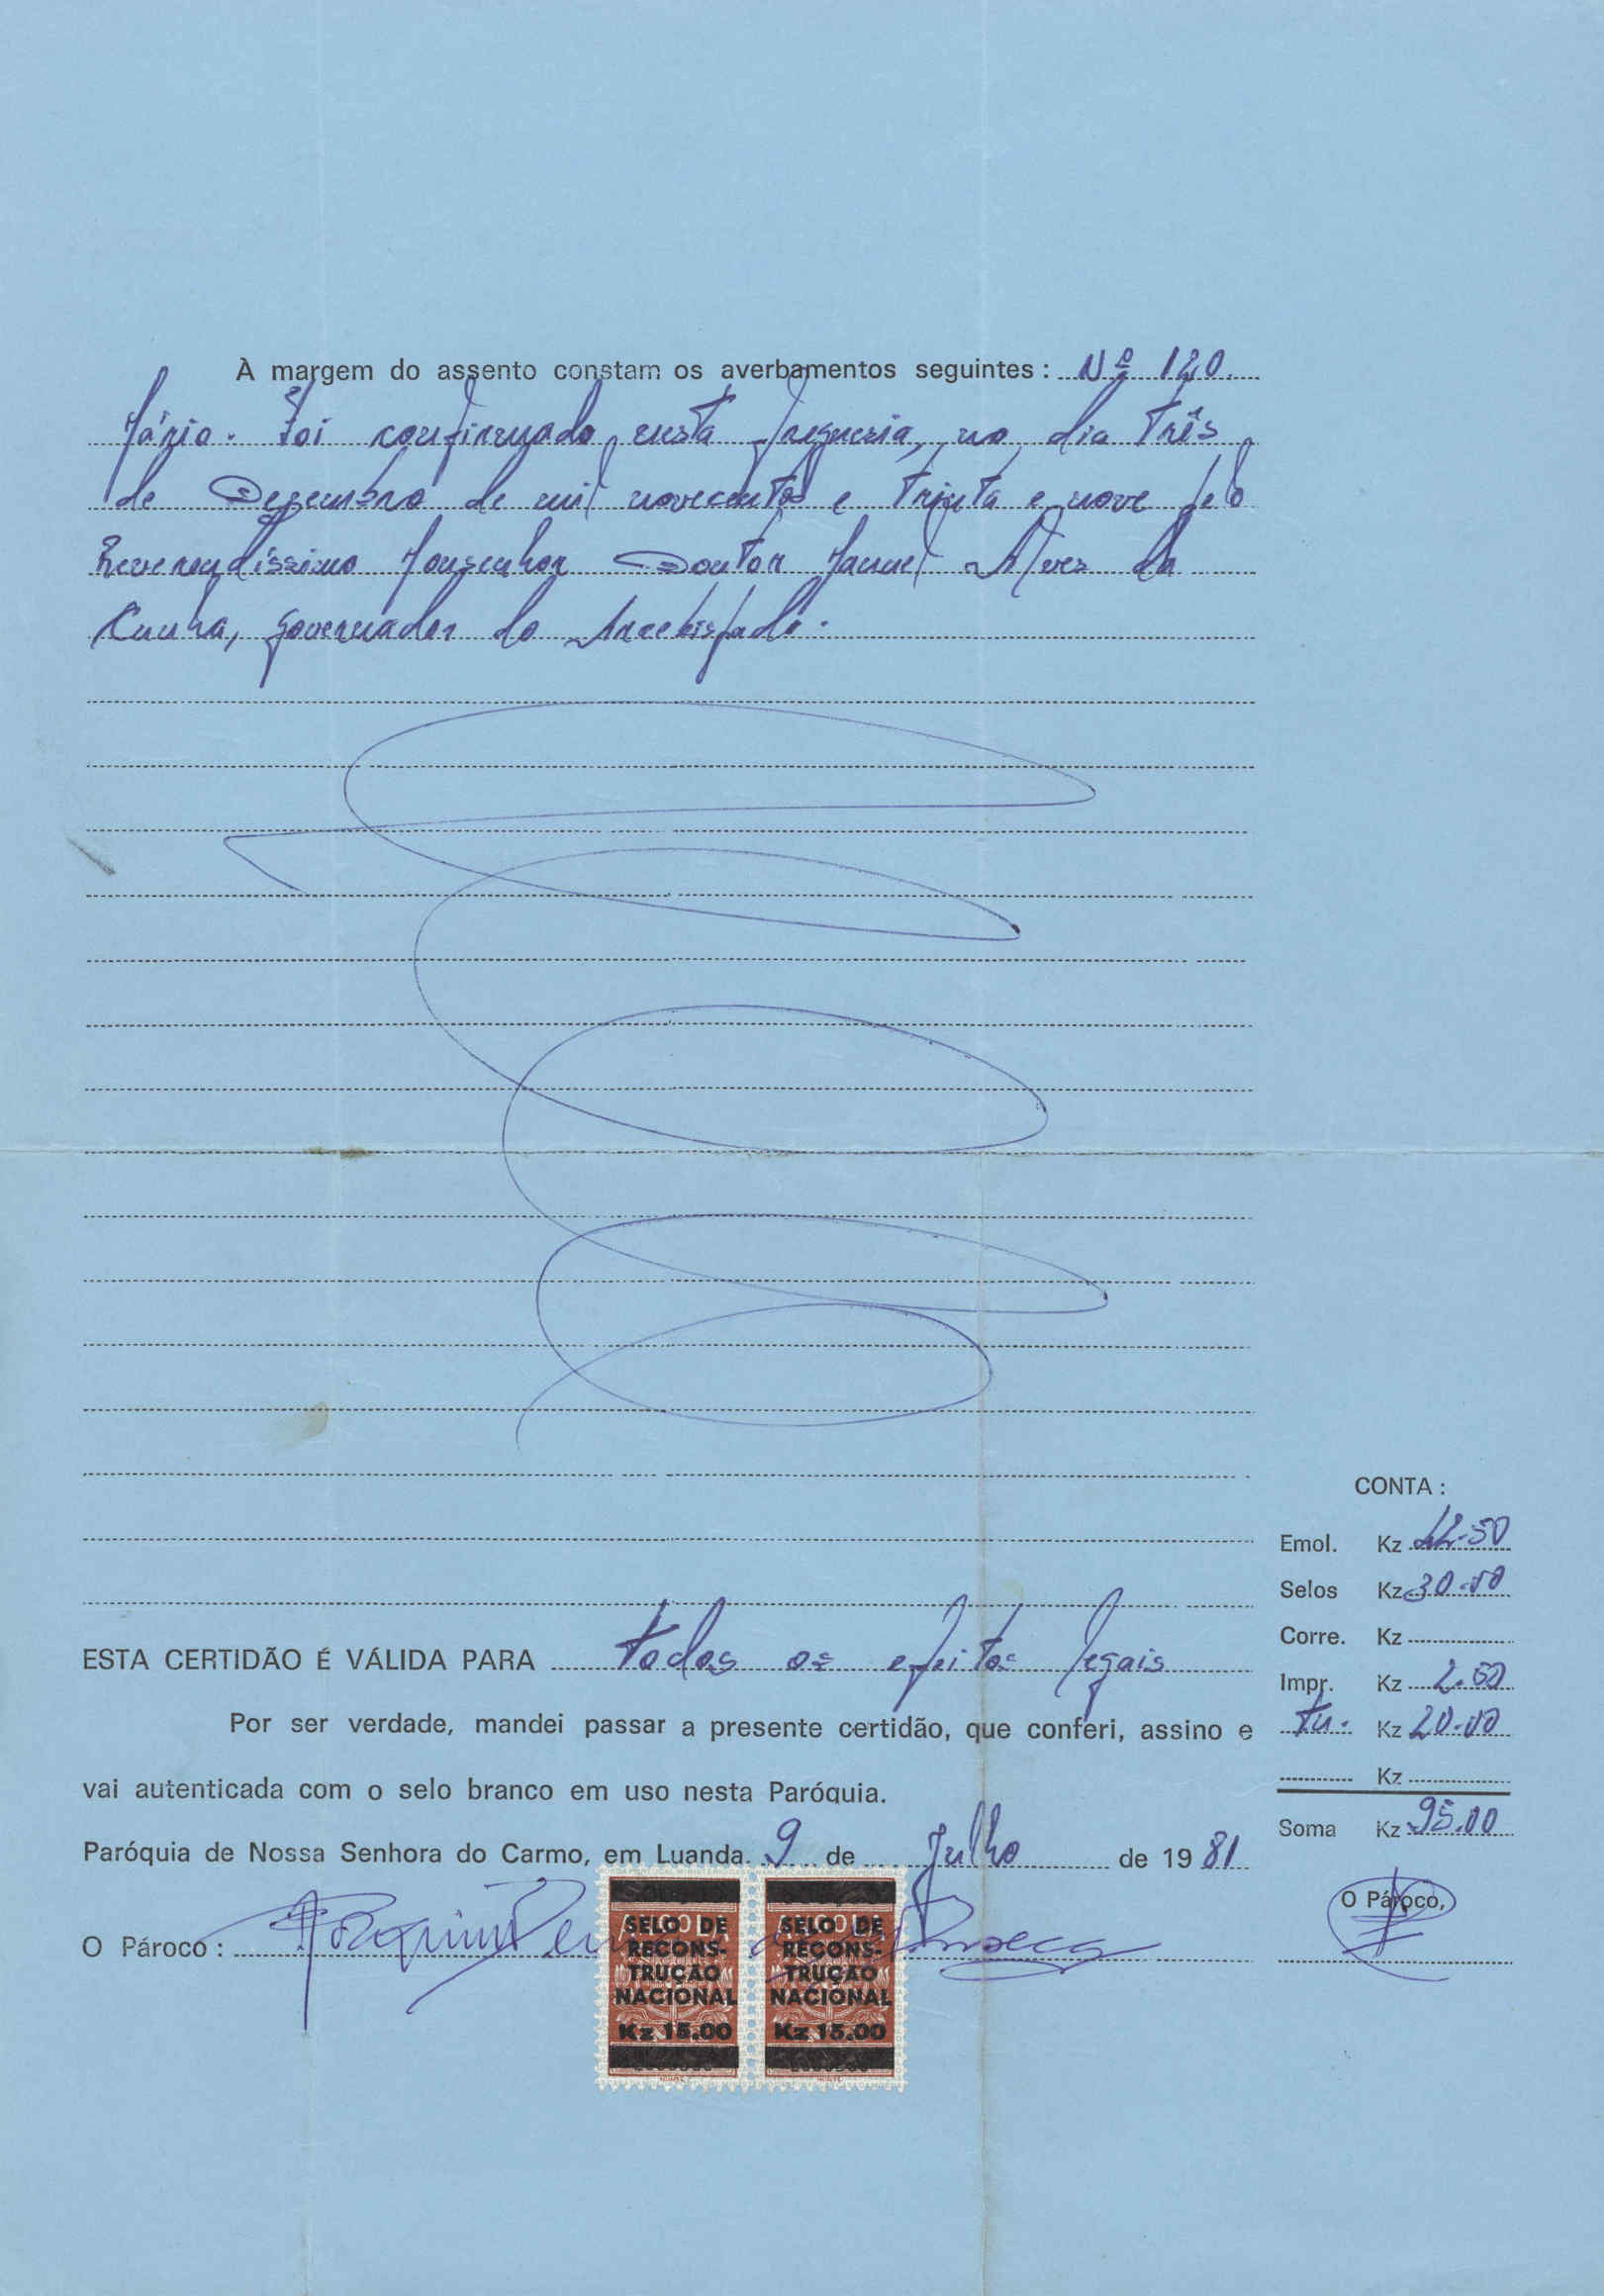 À margem do assento constam os averbamentos seguintes : Nº 120.
Mário. Foi confirmado nesta freguesia, no dia três
de Dezembro de mil novecentos e trinta e nove pelo
Reverendíssimo Monsenhor Doutor Manuel Alves da
Cunha, governador do Arcebispado.
CONTA :
Emol. Kz 42.50
Selos Kz 30.00
Corre. Kz
Impr. Kz 2.50
Kz 20.00
Kz
Soma Kz 95.00
O Pároco,
ESTA CERTIDÃO É VÁLIDA PARA todos os efeitos legais
Por ser verdade, mandei passar a presente certidão, que conferi, assino e
vai autenticada com o selo branco em uso nesta Paróquia.
Paróquia de Nossa Senhora do Carmo, em Luanda. 9 de Julho de 1981
O Pároco : Joaquim Fonseca
SELO DE
RECONS-
TRUÇÃO
NACIONAL
Kz 15.00
SELO DE
RECONS-
TRUÇÃO
NACIONAL
Kz 15.00